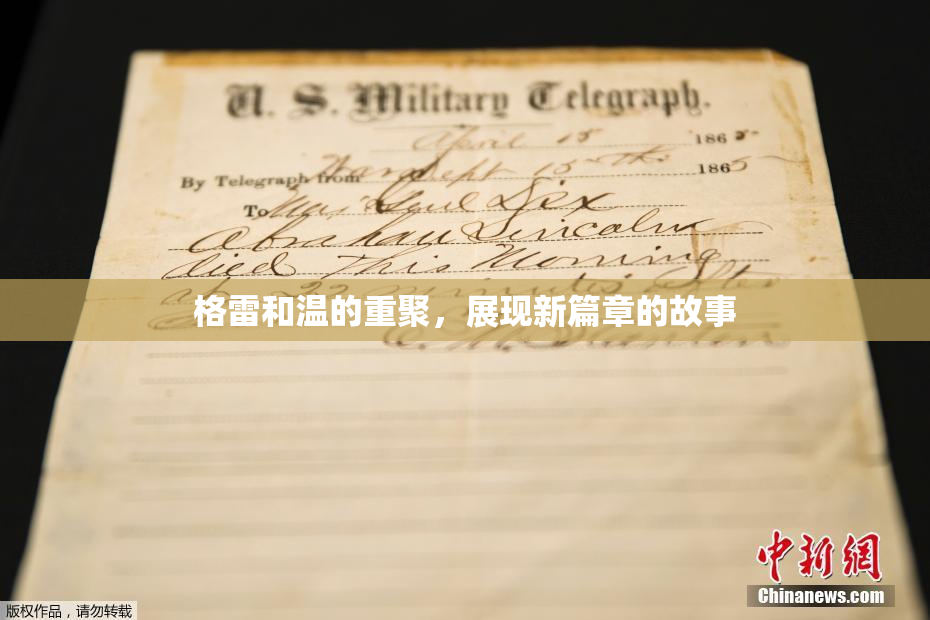 U. S. Military Telegraph.
April 15 1865
By Telegraph from War Dept 15th 1865
To Maj Genl Dix
Abraham Lincoln
died This Morning
22 minutes after
格雷和温的重聚，展现新篇章的故事
E. M. Stanton
中新网
Chinanews.com
版权作品，请勿转载